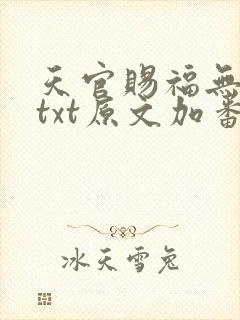 天官赐福无
txt原文加番
冰天雪兔